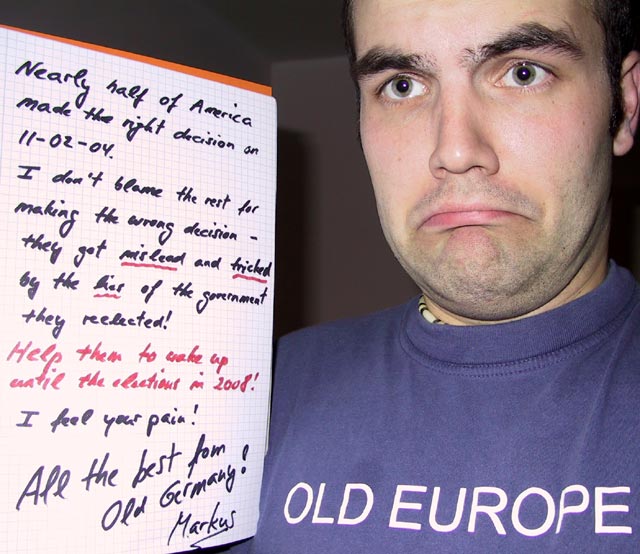 Nearly half of America
made the right decision on
11-02-04.
I don't blame the rest for
making the wrong decision –
they got mislead and tricked
by the lies of the government
they reelected!
Help them to wake up
until the elections in 2008!
I feel your pain!
All the best from
Old Germany!
Markus
OLD EUROPE